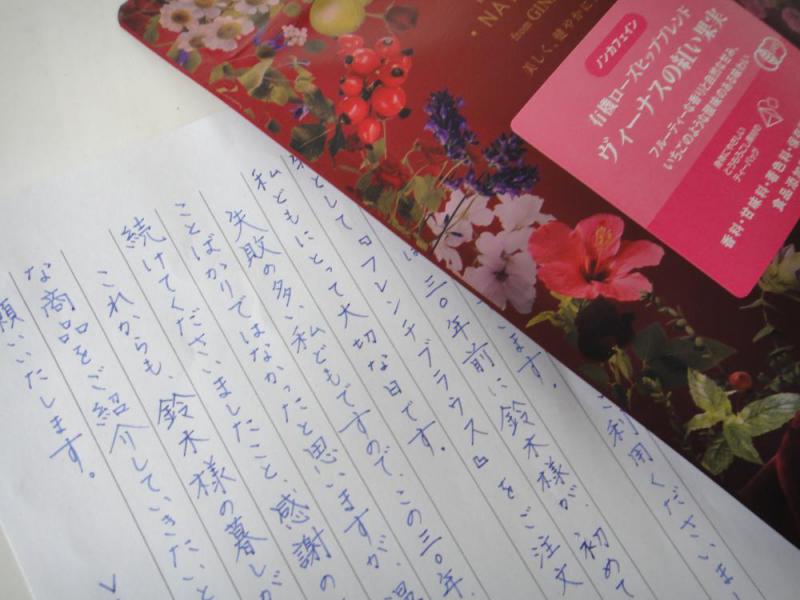 NA
from GIN
美しく、健やかに
ノンカフェイン
有機ローズヒップブレンド
ヴィーナスの紅い果実
フルーティーな香りと自然な甘み、
いちごのような酸味のある味わい
身体にやさしい
とうもろこし素材の
ティーバッグ
香料・甘味料・着色料・保
食品添加
ご利用くださいま
います。
は、三〇年前に鈴木様が、初めて
として『フレンチブラウス』をご注文
私どもにとって大切な日です。
失敗の多い私どもですので、この三〇年、
ことばかりではなかったと思いますが、温
続けてくださいましたこと、感謝の
これからも、鈴木様の暮しが
な商品をご紹介していきたいと
願いいたします。